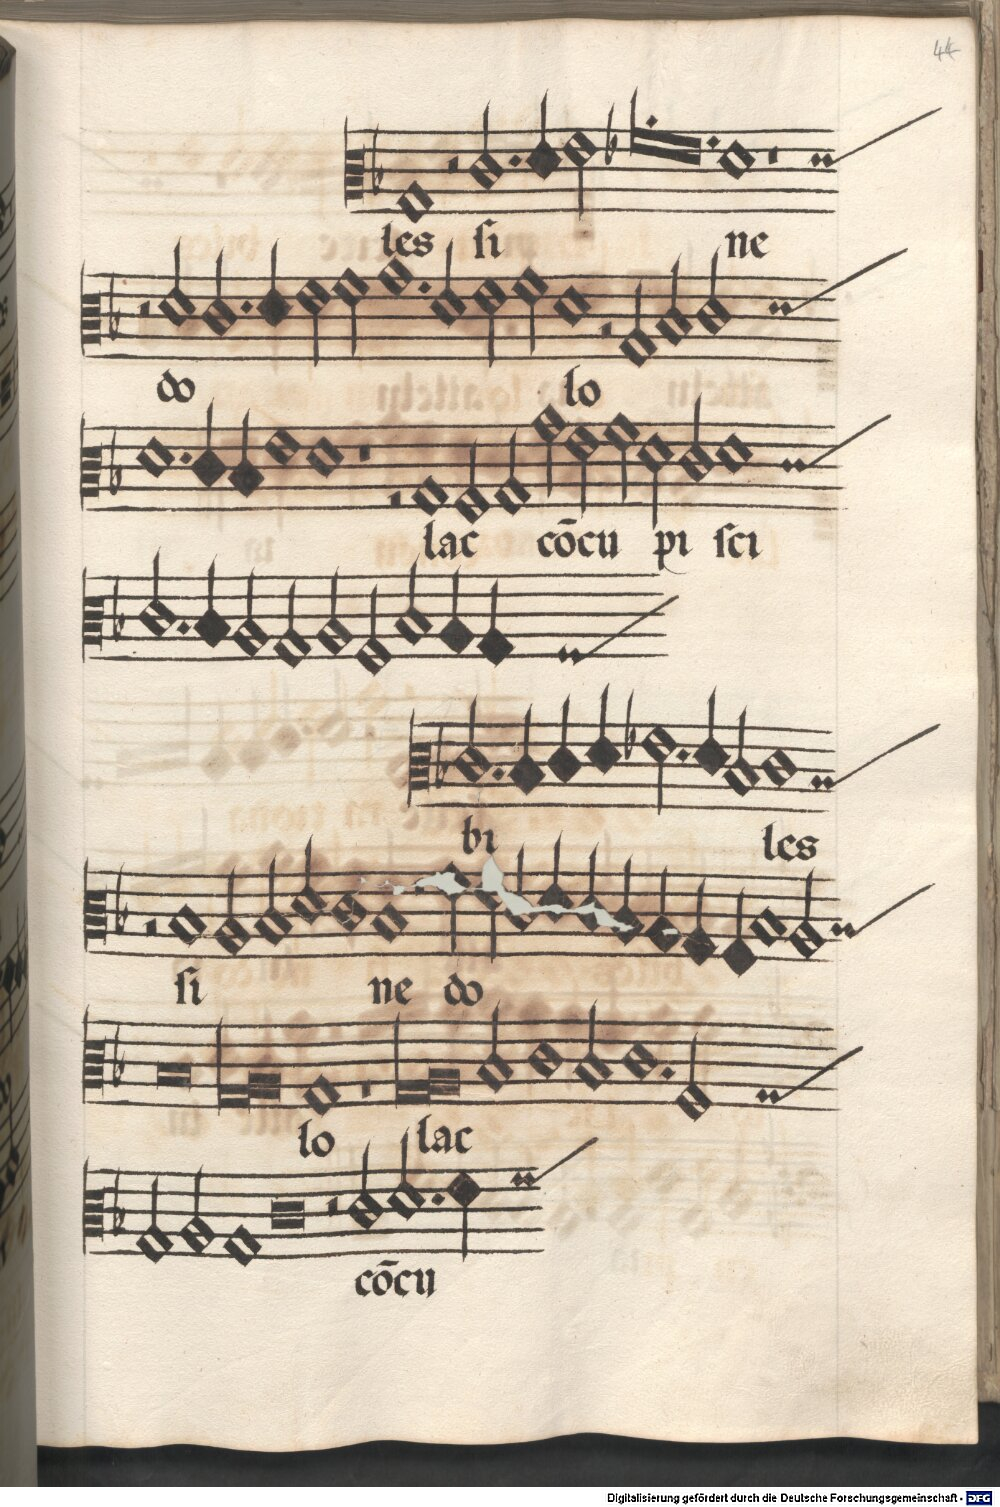 44
les si ne
do lo
lac cōcu pi sci
bi les
si ne do
lo lac
cōcu
Digitalisierung gefördert durch die Deutsche Forschungsgemeinschaft - DFG